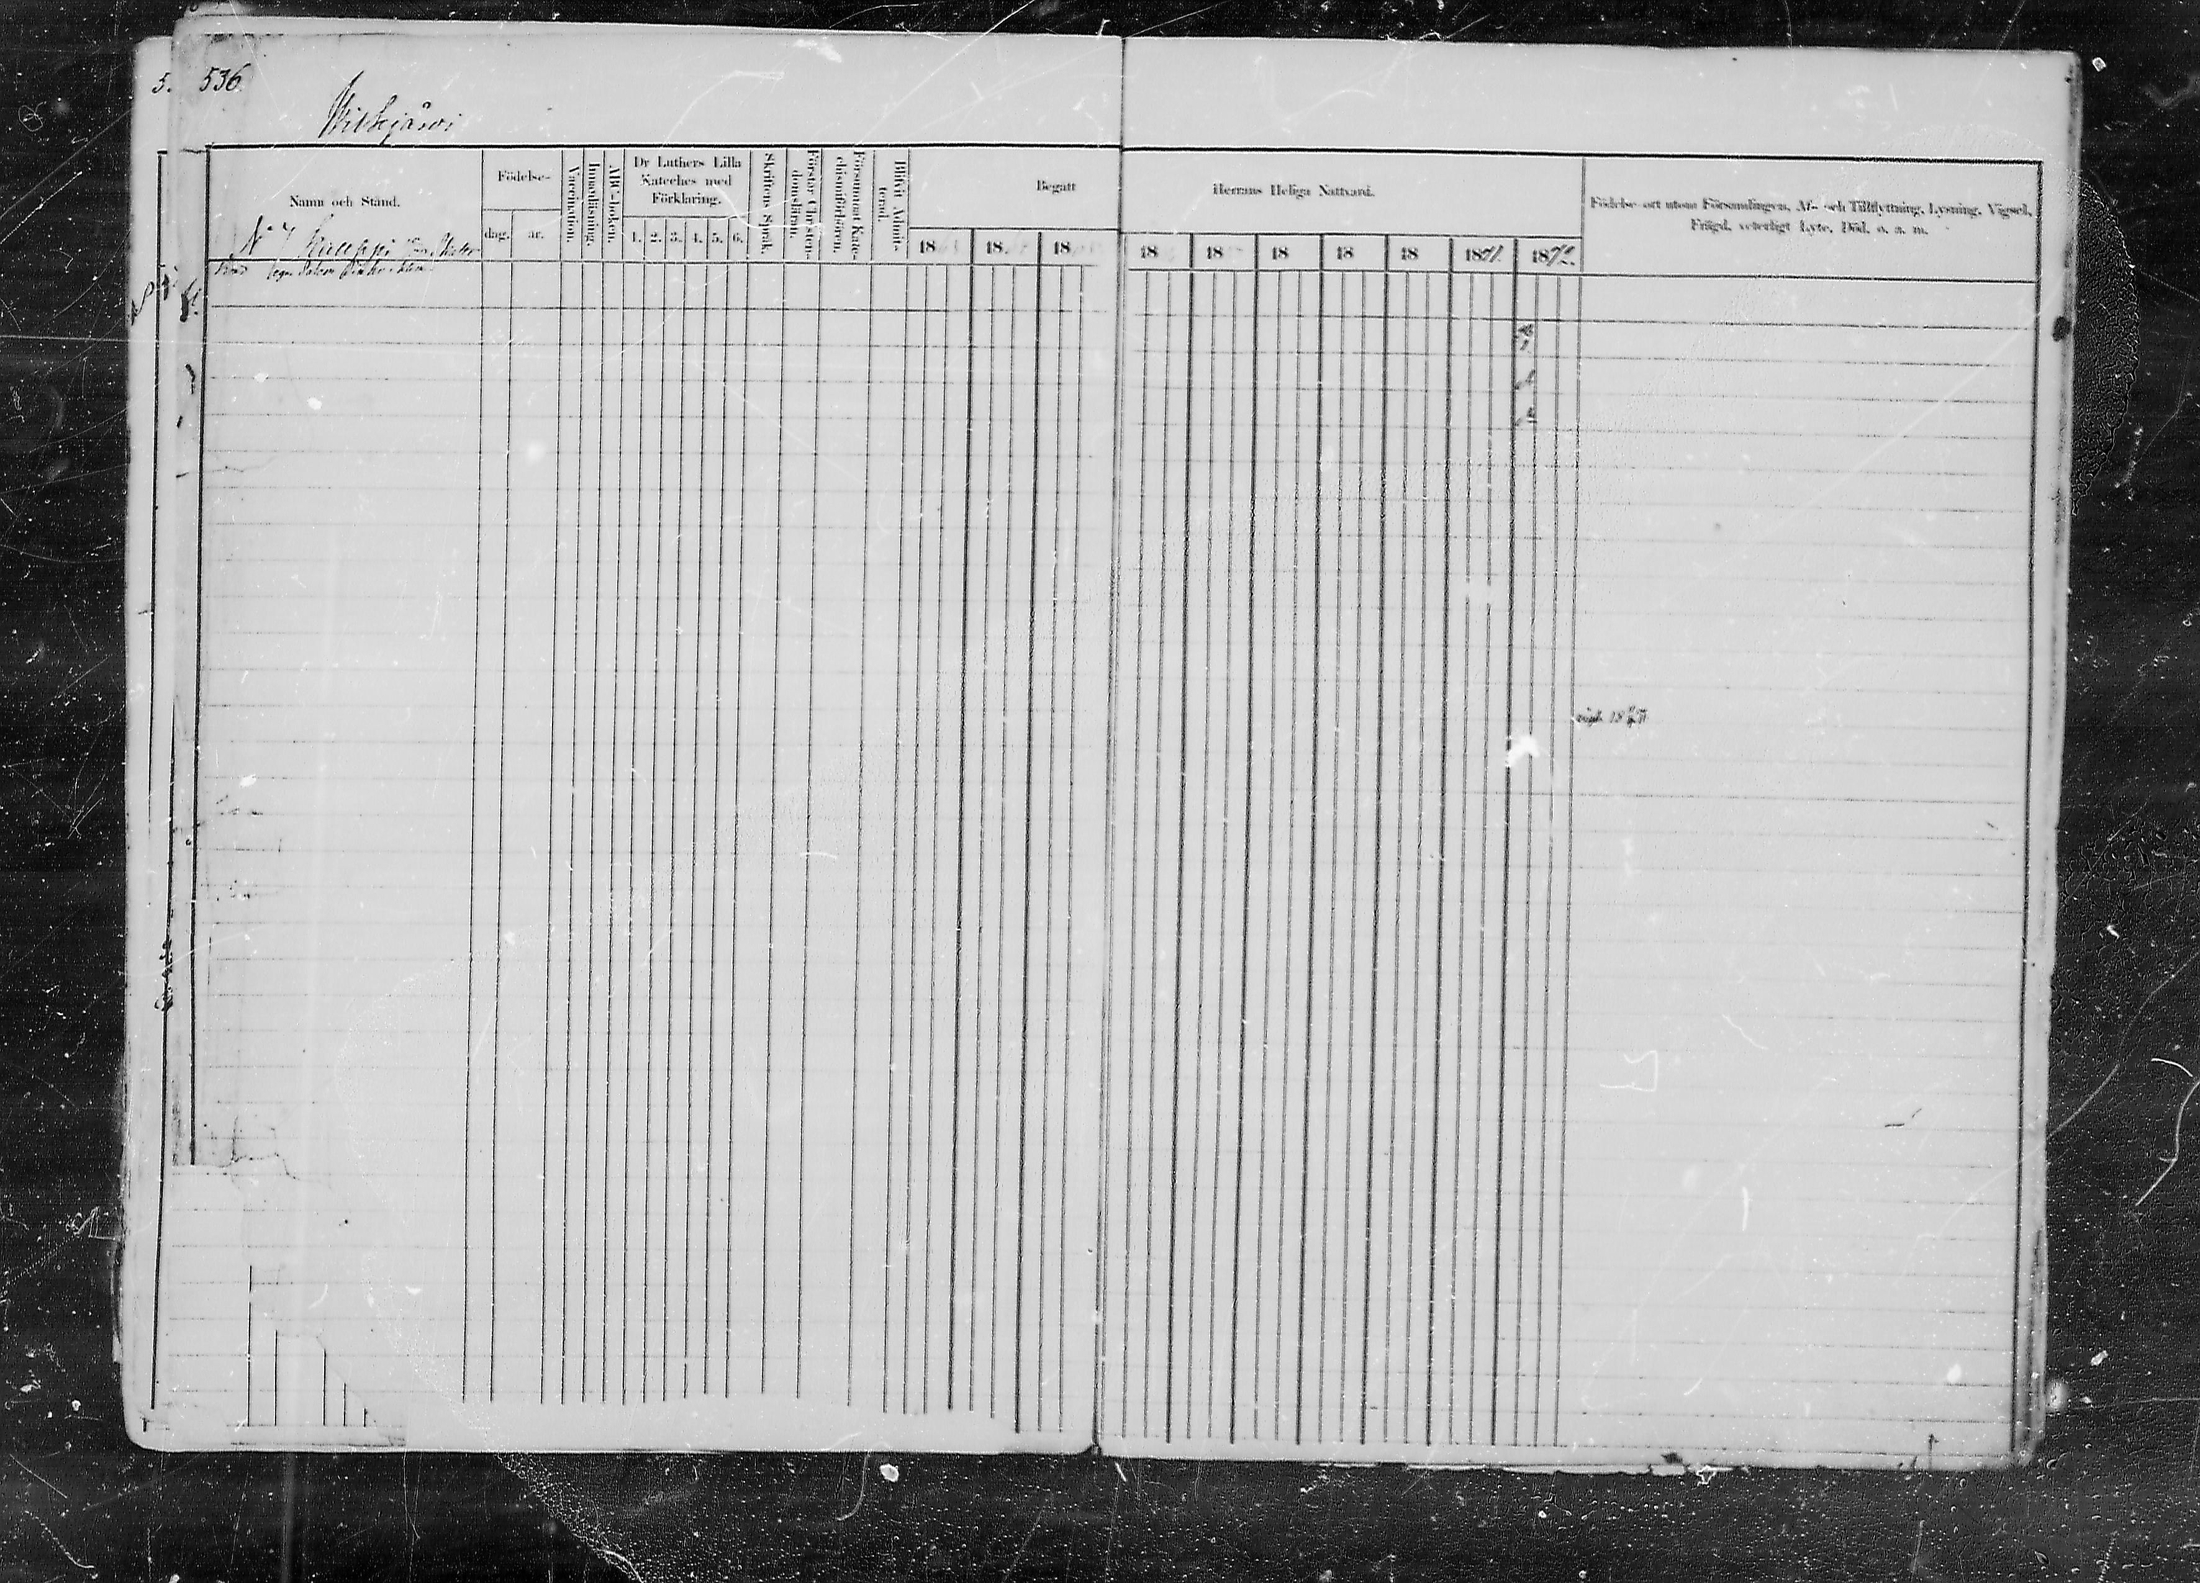 5. 536.
Wilkjärvi
Namn och Stånd.
Födelse-
dag.
år.
Vaccination.
Innanläsning.
ABC-boken.
Dr Luthers Lilla
Kateches med
Förklaring.
1. 2. 3. 4. 5. 6.
Skriftens Språk.
Förstår Christen-
domsläran.
Försummat Kate-
chismiförhören.
Blifvit Admit-
terad
Begått
18 18 18
Herrans Heliga Nattvard.
18 18 18 18 18 1871. 1872.
Födelse-ort utom Församlingen, Af- och Tillflyttning, Lysning, Vigsel,
Frägd, veterligt Lyte, Död, o. s. m.
N:o 7 Kauppi